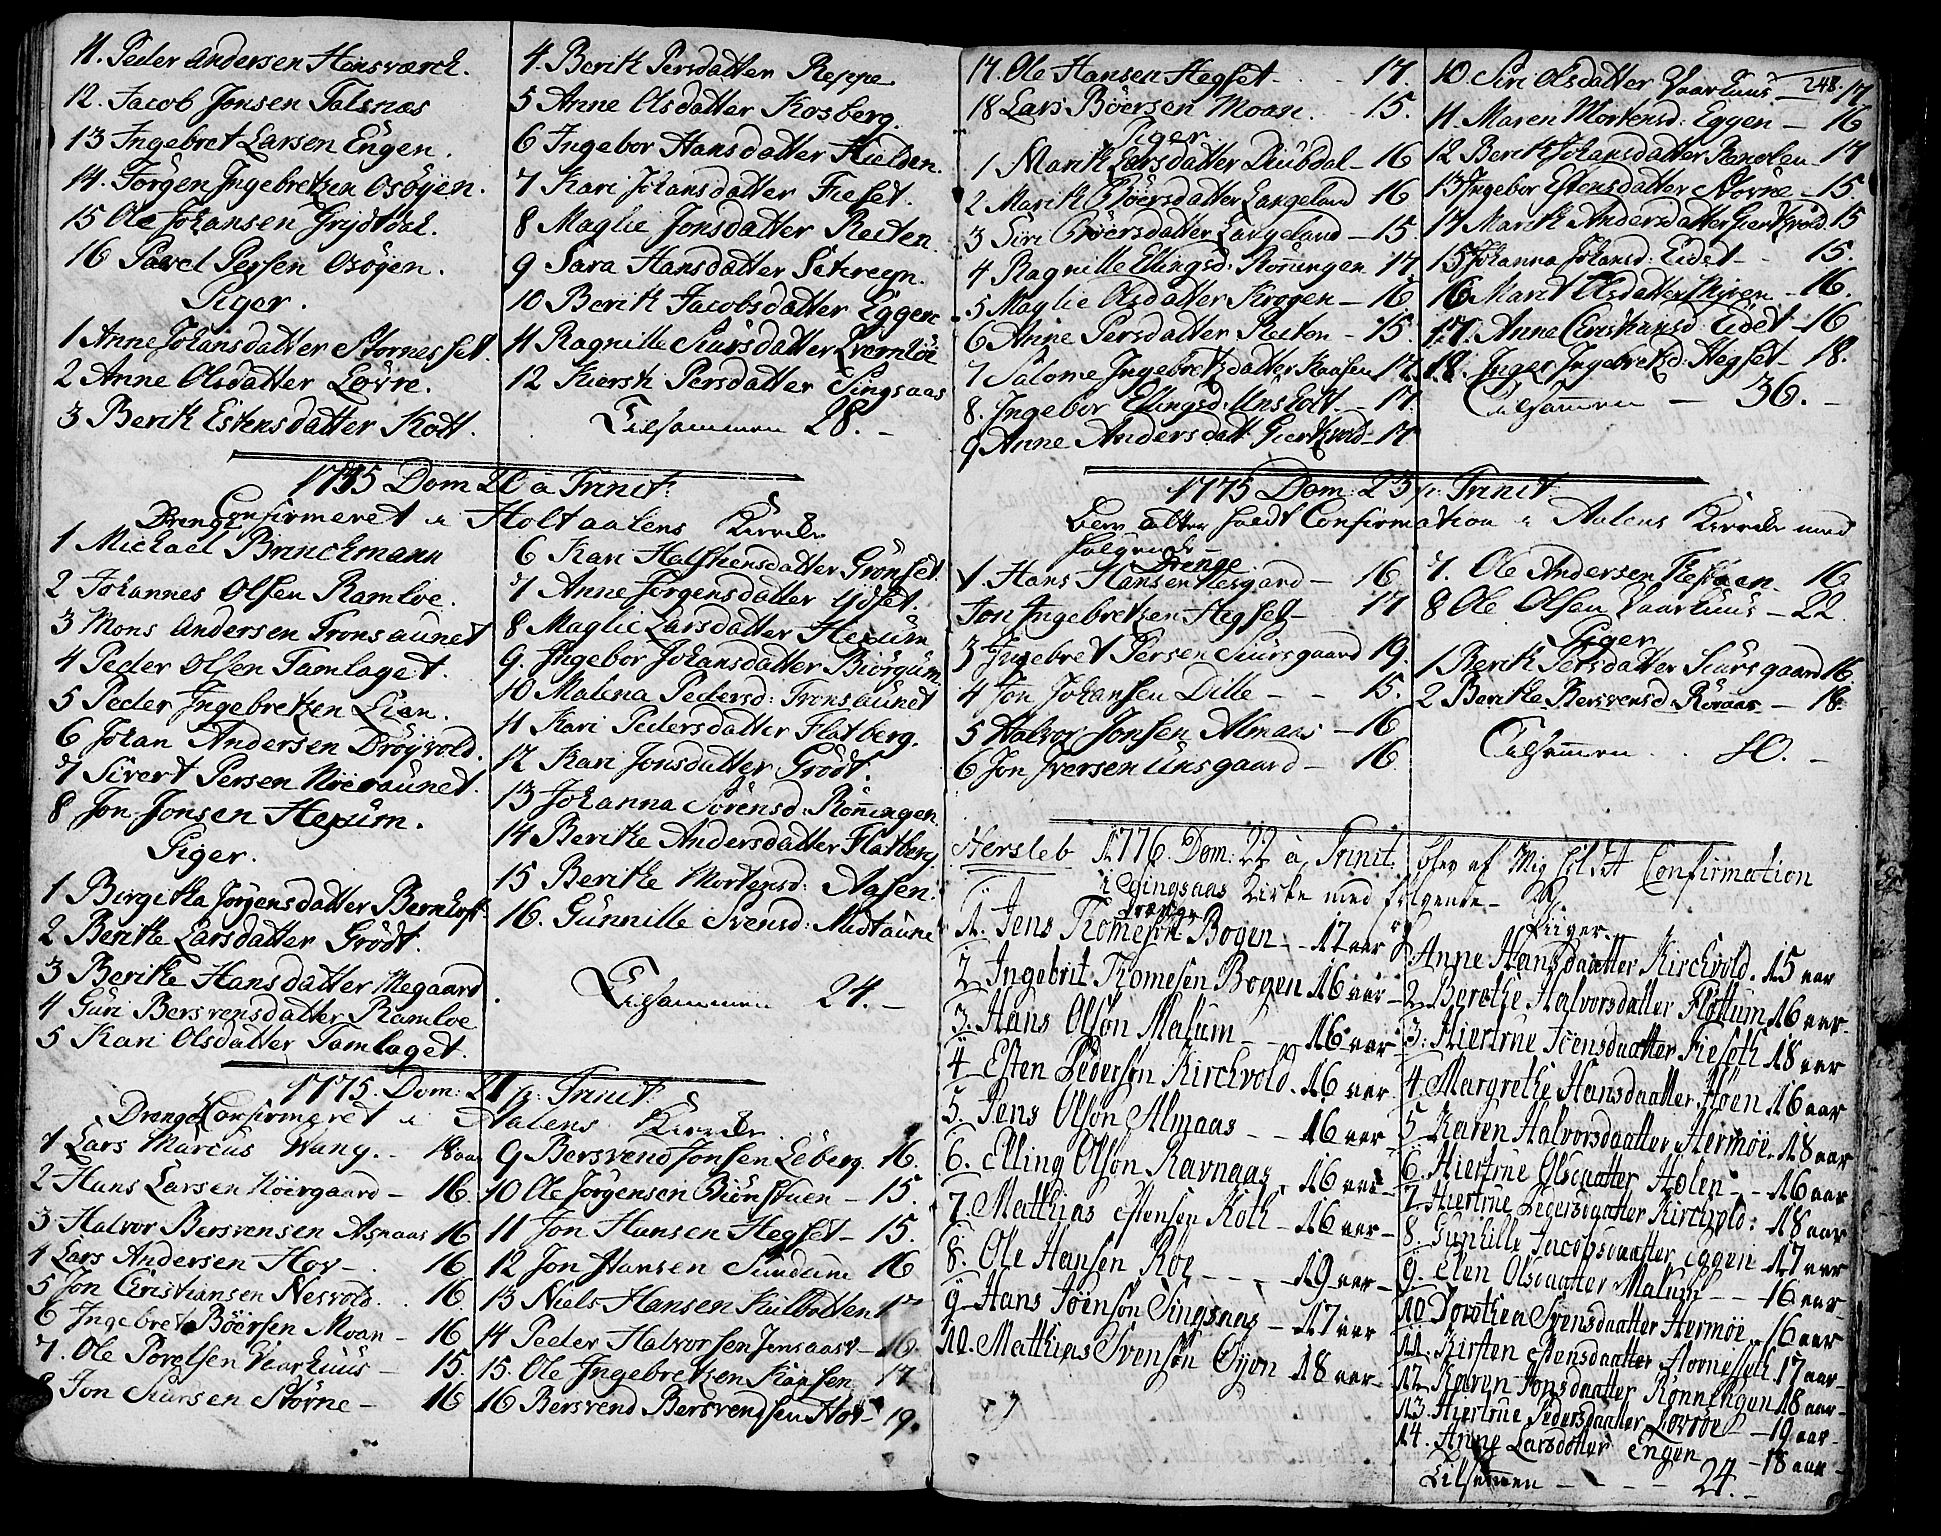 11. Peder Andersen Hansværch.
12. Jacob Jonsen Talsnæs
13 Ingebret Larsen Engen.
14. Jörgen Ingebretzen Osöyen.
15 Ole Johansen
16 Povel Persen Osöyen.
Piger.
1 Anne Johansdatter Stornesset.
2 Anne Olsdatter Lovre.
3 Berith Estensdatter Kott.
4. Berith Persdatter Reppe
5 Anne Olsdatter Kosberg.
6 Ingebor Hansdatter Kielden.
7 Kari Johansdatter Fieset.
8 Maglie Jonsdatter Reiten
9 Sara Hansdatter
10 Berith Jacobsdatter Eggen
11 Ragnille Siursdatter
12 Kiersti Persdatter Singsaas
Tilsammen 28.
1775 Dom 20 a Trinit:
Confirmeret i Holtaalens Kircke
Drenge
1 Michael Brinckmann
2 Johannes Olsen Ramloe.
3 Mons Andersen Tronsaunet
4 Peder Olsen Tamlaget.
5 Peder Ingebretzen Lian.
6 Johan Andersen Dröyvold.
7 Sivert Persen
8 Jon Jonsen Hexum.
Piger.
1 Birgitha Jörgensdatter Bernhoft
2 Berithe Larsdatter Grödt.
3 Berithe Hansdatter Megaard
4 Guri Bersvensdatter Ramloe
5 Kari Olsdatter Tamlaget.
6 Kari Halstensdatter Grönset.
7 Anne Jörgensdatter Ydset.
8 Maglie Larsdatter Hexum
9. Ingebor Johansdatter Biörgum
10 Malena Pedersd: Tronsaunet
11 Kari Pedersdatter Flatberg.
12 Kari Jonsdatter Grödt.
13 Johanna Sörensd. Röningen.
14 Berithe Andersdatter Flatberg
15 Berithe Mortensd: Aasen.
16. Gunnille Svensd: Midtaune
Tilsammen 24.
1775. Dom: 21 p: Trinit:
Confirmeret i Aalens Kircke
Drenge
1 Lars Marcus Wang. - 18 aar
2 Hans Larsen Höiegaard - 16
3 Halvor Bersvensen Asnaas 16
4 Lars Andersen Hov - 16
5 Jon Christiansen Nesvold. 16
6 Ingebret Böersen Moan - 16
7. Ole Povelsen Vaarhuus - 15.
8 Jon Siursen Störne - 16
9 Bersvend Jonsen Leberg. 16.
10 Ole Jörgensen - 15.
11 Jon Hansen Hegset - 15.
12 Jon Hansen 16
13 Niels Hansen Kulbotten 17
14 Peder Halvorsen - 16.
15. Ole Ingebretzen Kaasen 17
16 Bersvend Bersvendsen Hov - 19.
17. Ole Hansen Hegset - 17.
18 Lars Böersen Moan. - 15.
Piger
1 Marith Larsdatter Diubdal - 16
2 Marith Böersdatter Langeland 16
3 Siri Böersdatter Langeland - 15.
4 Ragnille Ellingsd: Röningen 17.
5 Maglie Olsdatter Krogen - 16
6 Anne Persdatter Reiton - 15.
7 Salome Ingebretsdatter Kaasen 17.
8. Ingebor Ellingsd: Unsholt - 17.
9 Anne Andersdatt: Gierkvold - 17
248.
10 Siri Olsdatter Vaarhuus - 17
11 Maren Mortensd: Eggen - 16
12 Berith Johansdatter Renolen - 17
13 Ingebor Estensdatter Störne - 15
14 Marith Andersdatter Gierkvold. 15
15 Johanna Johansd: Eidet - 15.
16 Marit Olsdatter Myren - 16.
17. Anne Christiansd Eidet - 16
18. Inger Ingebretsd: Hegset - 18.
Tilsammen - 36. -
1775 Dom: 23 p: Trinit:
Blev atter holdt Confirmation i Aalens Kircke med
følgende -
Drenge
1 Hans Hansen Nesgaard - 16
Jon Ingebretzen Hegset - 17
3 Ingebret Persen Siursgaard 19.
4 Jon Johansen Dille - - 15.
5 Halvor Jonsen Almaas - 16
6 Jon Iversen Unsgaard - 16
7. Ole Andersen 16
8 Ole Olsen Vaarhuus - 22
Piger
1 Berith Persdatter Siursgaard 16
2 Berithe Bersvensd Röraas - 18.
Tilsammen . . 10. -
Hersleb 1776 Dom: 22 a, Trinit. blev af Mig holdt Confirmation
i Singsaas Kirke med følgende -
Drenge
1. Jens Thomesön Bogen - 17 aar
2. Ingebrit Thomesen Bogen 16 aar
3. Hans Olsön Malum - 16 aar
4 Esten Pedersön Kirchvold. 16 aar
5. Jens Olsön Almaas - - 16 aar
6. Elling Olsön Ravnaas - 16 aar
7. Matthias Estensen Koth - 16 aar -
8. Ole Hansen Roe - - - 19 aar -
9 Hans Joensön Singsaas - 17 aar
10. Matthias Svensön Öyen 18 aar -
Piiger
Anne Hansdaatter Kirchvold. 15 aar
2 Berethe Halvorsdaatter Flottum 16 aar -
3. Hiertrue Joensdaatter Fieseth 18 aar
4. Margrethe Hansdaatter Höen 16 aar
5 Karen Halvorsdaatter Hermöe. 18 aar
6. Hiertrue Olsdaatter Holen - - 16 aar
7. Hiertrue Pedersdaatter Kirchvold: 18 aar
8. Gunhille Jacobsdaatter Eggen 17 aar
9. Elen Olsdaatter Malum - - 16 aar
10 Dorothea Svensdaatter Hermöe - 16 aar
11. Kirsten Estensdaatter 17 aar -
12 Karen Jonsdaatter Rönningen 18 aar -
13. Hiertrue Pedersdaatter Lovröe - 19 aar -
14. Anne Larsdotter Engen - 18 aar -
Tilsammen - - - 24. -